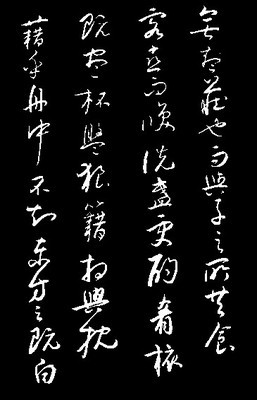 無盡藏也而與子之所共食
客喜而笑洗盞更酌肴核
既盡杯盤狼籍相與枕
藉乎舟中不知東方之既白